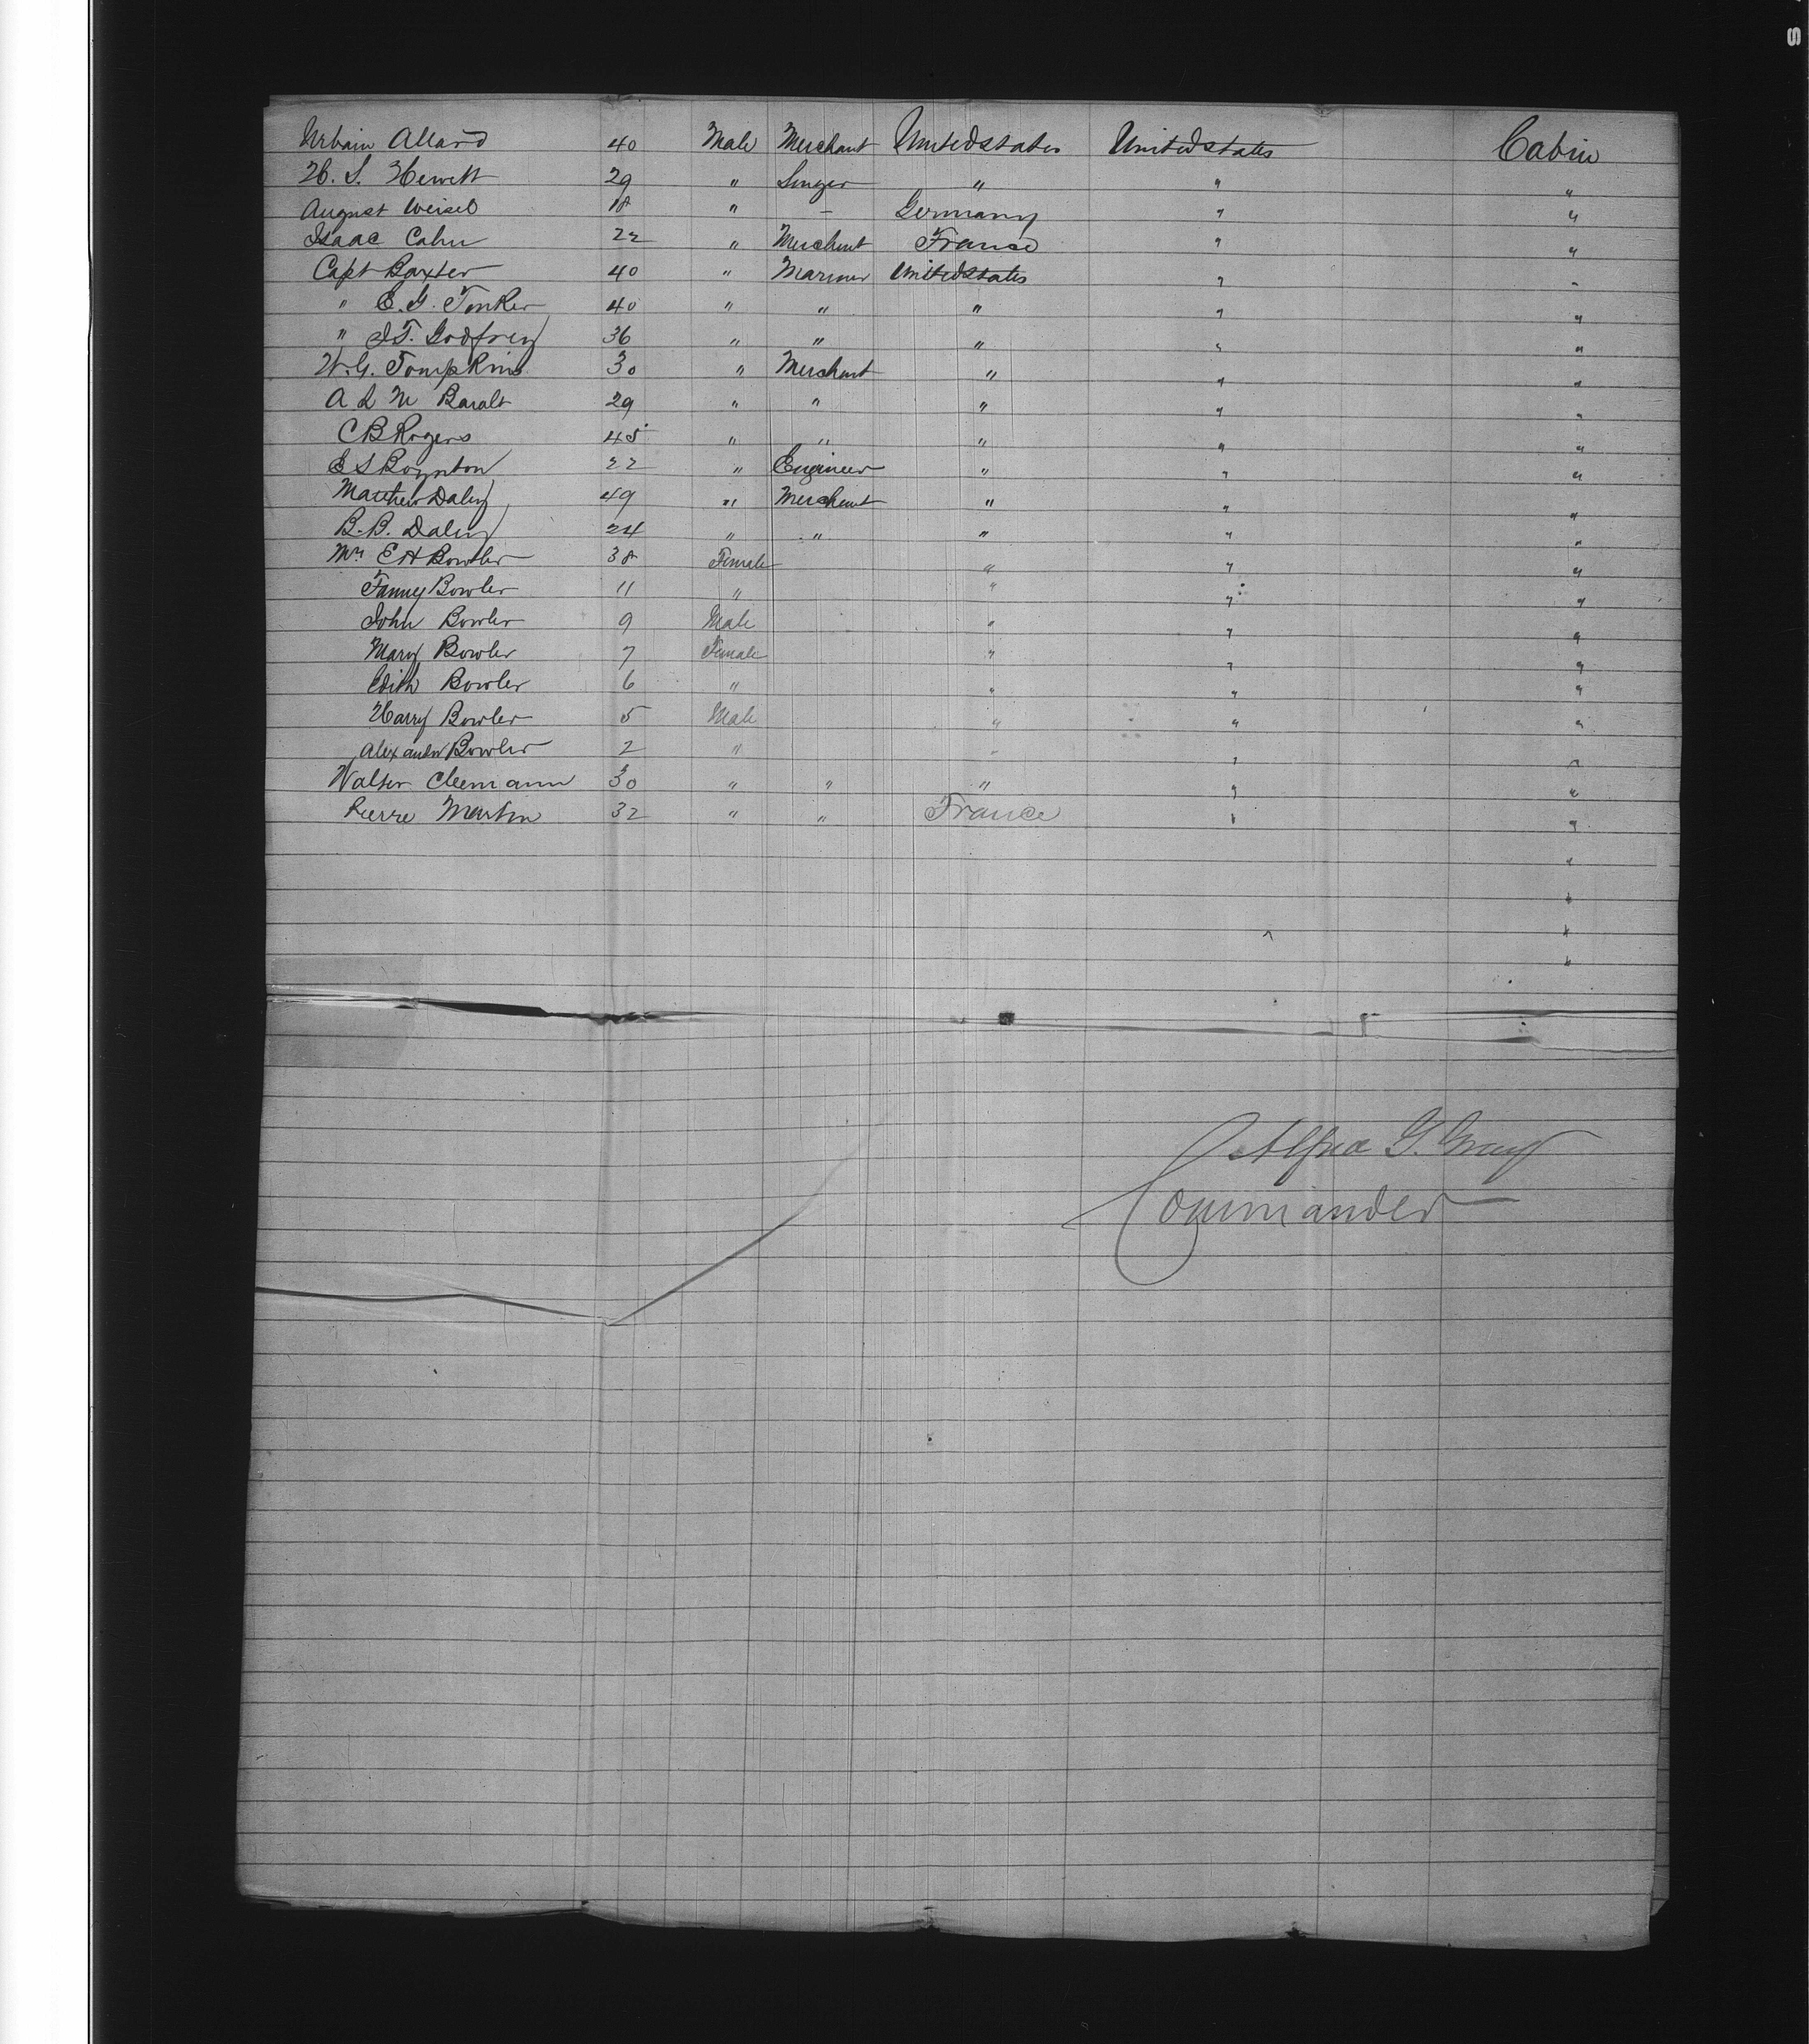 Urbain Allard 40 Male Merchant United states United states Cabin
H. S. Hewett 29 " Singer " " "
August Weisel 18 " - Germany " "
Isaac Cahn 22 " Merchant France " "
Capt Baxter 40 " Mariner United states " "
" E. G. Tinker 40 " " " " "
" J. T. Godfrey 36 " " " " "
W. G. Tompkins 30 " Merchant " " "
A L M Baralt 29 " " " " "
C B Rogers 45 " " " " "
E S Boynton 22 " Engineer " " "
Matthew Daly 49 " Merchant " " "
B. B. Daly 24 " " " " "
Mrs E H Bowler 38 Female " " "
Fanny Bowler 11 " " " "
John Bowler 9 Male " " "
Mary Bowler 7 Female " " "
Edith Bowler 6 " " " "
Harry Bowler 5 Male " " "
Alexander Bowler 2 " " " "
Walter Cleemann 30 " " " " "
Pierre Martin 32 " " France " "
"
"
"
"
G.
Commander